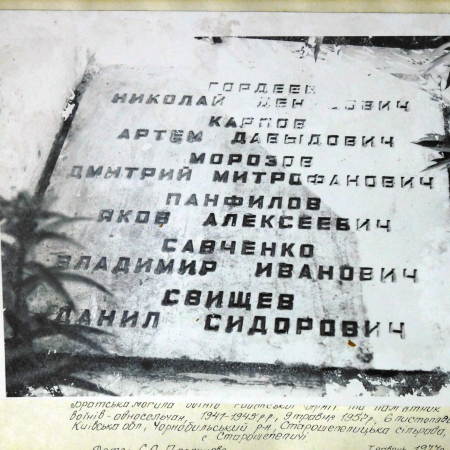 ГОРДЕЕВ
НИКОЛАЙ
КАРПОВ
АРТЕМ ДАВЫДОВИЧ
МОРОЗОВ
ДМИТРИЙ МИТРОФАНОВИЧ
ПАНФИЛОВ
ЯКОВ АЛЕКСЕЕВИЧ
САВЧЕНКО
ВЛАДИМИР ИВАНОВИЧ
СВИЩЕВ
ДАНИЛ СИДОРОВИЧ
Братська могила воїнів Радянської Армії та пам'ятник
воїнів-односельчан, 1941-1945 р.р., 9 травня 1957р, 6 листопада
Київська обл, Чорнобильський р-н, Старошепелицька сільрада,
с Старошепеличі
Фото: С.О.